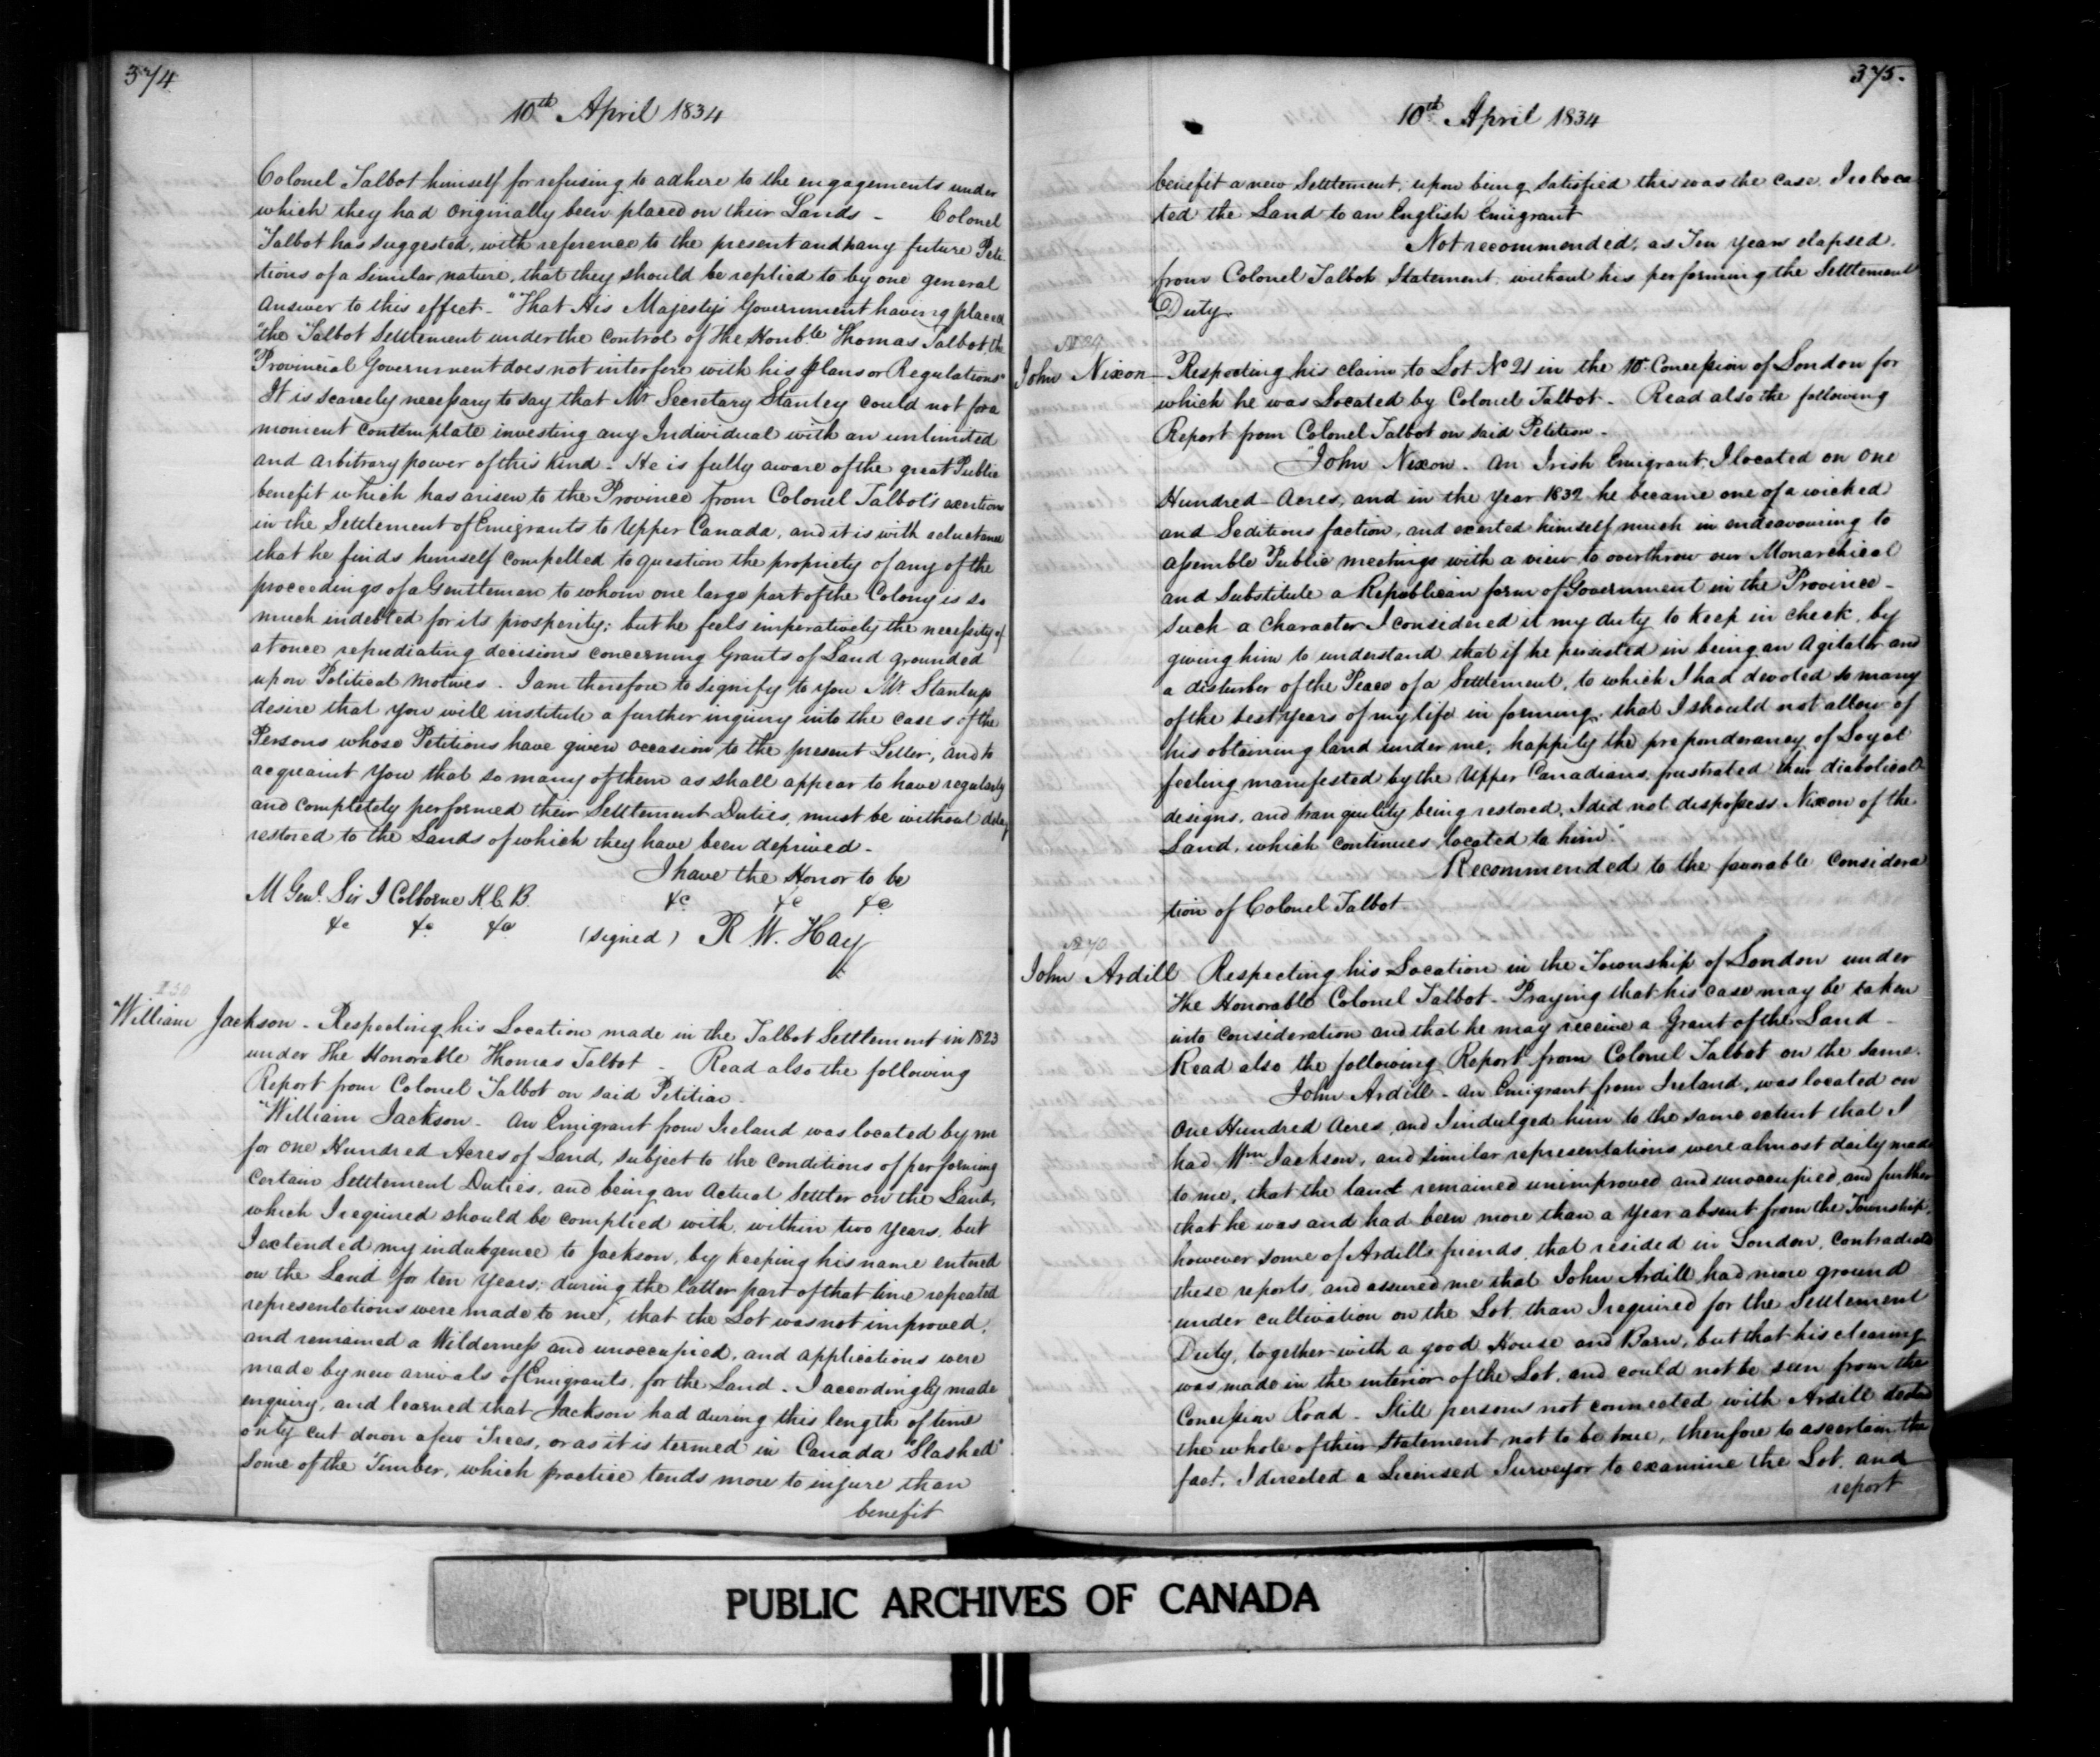 374
10th April 1834
Colonel Talbot himself for refusing to adhere to the engagements under
which they had Originally been placed on their Lands - Colonel
Talbot has suggested, with reference to the present and any future Peti
tions of a Similar nature, that they should be replied to by one general
answer to this effect - "That His Majesty's Government having placed
"the Talbot Settlement under the Control of The Honble Thomas Talbot, the
"Provincial Government does not interfere with his plans or Regulations"
It is scarcely necessary to say that Mr Secretary Stanley could not for a
moment contemplate investing any Individual with an unlimited
and arbitrary power of this kind - He is fully aware of the great Public
benefit which has arisen to the Province from Colonel Talbot's exertions
in the Settlement of Emigrants to Upper Canada, and it is with reluctance
that he finds himself compelled to question the propriety of any of the
proceedings of a Gentleman to whom one large part of the Colony is so
much indebted for its prosperity; but he feels imperatively the necessity of
at once repudiating decisions concerning Grants of Land grounded
upon Political motives - I am therefore to signify to you Mr Stanleys
desire that you will institute a further inquiry into the cases of the
Persons whose Petitions have given occasion to the present Letter, and to
acquaint you that so many of them as shall appear to have regularly
and completely performed their Settlement Duties, must be without delay
restored to the Lands of which they have been deprived -
I have the Honor to be
M Genl. Sir J Colborne K.C.B. &c &c &c
&c &c &c (signed) R W. Hay
William Jackson - Respecting his Location made in the Talbot Settlement in 1823
under The Honorable Thomas Talbot - Read also the following
Report from Colonel Talbot on said Petition -
"William Jackson - An Emigrant from Ireland was located by me
for One Hundred Acres of Land, subject to the conditions of performing
certain Settlement Duties, and being an Actual Settler on the Land,
which I required should be complied with, within two years, but
I extended my indulgence to Jackson, by keeping his name entered
on the Land for ten years; during the latter part of that time repeated
representations were made to me, that the Lot was not improved,
and remained a Wilderness and unoccupied, and applications were
made by new arrivals of Emigrants, for the Land - I accordingly made
enquiry, and learned that Jackson had during this length of time
only cut down a few Trees, or as it is termed in Canada "Slashed"
Some of the Timber, which practice tends more to injure than
benefit
375.
10th April 1834
benefit a new Settlement, upon being satisfied this was the case I reloca
ted the Land to an English Emigrant
Not recommended, as Ten years elapsed
from Colonel Talbots Statement without his performing the Settlement
Duty.
John Nixon - Respecting his claim to Lot No 21 in the 10 Concession of London for
which he was Located by Colonel Talbot - Read also the following
Report from Colonel Talbot on said Petition -
"John Nixon - An Irish Emigrant, I located on One
Hundred Acres, and in the year 1832 he became one of a wicked
and Seditious faction, and exerted himself much in endeavouring to
assemble Public meetings with a view to overthrow our Monarchical
and Substitute a Republican form of Government in the Province -
Such a Character I considered it my duty to keep in check, by
giving him to understand that if he persisted in being an Agitator and
a disturber of the Peace of a Settlement, to which I had devoted so many
of the best years of my life in forming, that I should not allow of
his obtaining land under me, happily the preponderancy of Loyal
feeling manifested by the Upper Canadians, frustrated their diabolical
designs, and tranquility being restored, I did not dispossess Nixon of the
Land, which continues located to him."
Recommended to the favorable Considera
tion of Colonel Talbot
John Ardill Respecting his Location in the Township of London under
The Honorable Colonel Talbot - Praying that his case may be taken
into consideration and that he may receive a Grant of the Land -
Read also the following Report from Colonel Talbot on the same.
John Ardill - An Emigrant from Ireland, was located on
One Hundred Acres, and I indulged him to the same extent that I
had Wm Jackson, and similar representations were almost daily made
to me, that the land remained unimproved and unoccupied, and further
that he was and had been more than a year absent from the Township,
however some of Ardills friends, that resided in London, contradicted
these reports, and assured me that John Ardill had more ground
under cultivation on the Lot, than I required for the Settlement
Duty, together with a good House and Barn, but that his clearing
was made in the interior of the Lot, and could not be seen from the
Concession Road - Still persons not connected with Ardill declared
the whole of their Statement not to be true, therefore to ascertain the
fact, I directed a Licensed Surveyor to examine the Lot, and
report
PUBLIC ARCHIVES OF CANADA